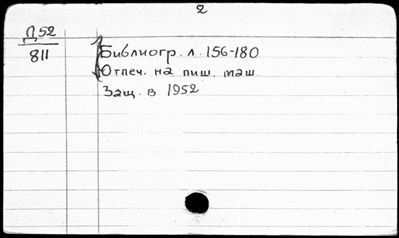 2
Д52
811
Библиогр. л. 156-180
Отпеч. на пиш. маш.
Защ. в 1952